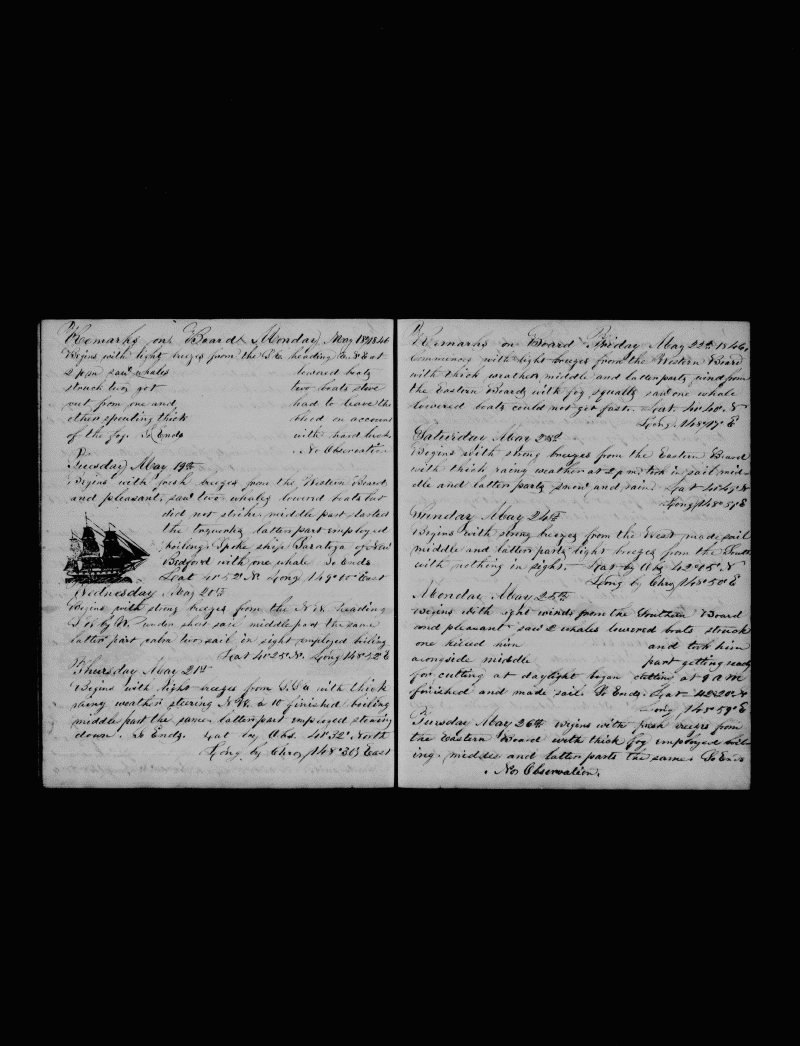 Remarks on Board Monday May 18th 1846
Begins with light breezes from the S.E. heading E. N E at
2 p.m. saw whales lowered boats
struck two got two boats stove
cut from one and had to leave the
other spouting thick blood on account
of the fog. So Ends with hard luck
No Observation
Tuesday May 19th
Begins with fresh breezes from the Western Board
and pleasant. saw two whales lowered boats but
did not strike. middle part lashed
the tryworks latter part employed
boiling. Spoke ship Saratoga of New
Bedford with one whale So Ends
Lat 41° 52' N. Long 149° 10' East
Wednesday May 20th
Begins with strong breezes from the N. E. heading
under short sail middle part the same
latter part calm two sail in sight employed boiling
Lat 40° 25' N. Long 148° 52' E
Thursday May 21st
Begins with light breezes from S. E. with thick
rainy weather steering at 10 finished boiling
middle part the same. latter part employed stowing
down. So Ends. Lat by Obs. 40° 32' North
Long by Chro 148° 30' East
Remarks on Board Friday May 22nd 1846,
Commences with light breezes from the Western Board
with thick weather middle and latter parts wind from
the Eastern Board with fog squally saw one whale
lowered boats could not get fast. Lat. 40° 40' N
Long. 148° 47' E
Saturday May 23d
Begins with strong breezes from the Eastern Board
with thick rainy weather at 2 p m. took in sail mid-
dle and latter parts snow and rain. Lat 41° 49' N
Long 148° 51' E
Sunday May 24th
Begins with strong breezes from the West made sail
middle and latter parts light breezes from the South
with nothing in sight. Lat by Obs 42° 05' N
Long by Chro 148° 50' E
Monday May 25th
Begins with light winds from the Southern Board
and pleasant saw 2 whales lowered boats struck
one killed him and took him
alongside middle part getting ready
for cutting at daylight began cutting at 9 a m
finished and made sail. So Ends. Lat 42° 20' N
Long 148° 59' E
Tuesday May 26th Begins with fresh breezes from
the Eastern Board with thick fog employed boil-
ing. middle and latter parts the same. So Ends
No Observation.